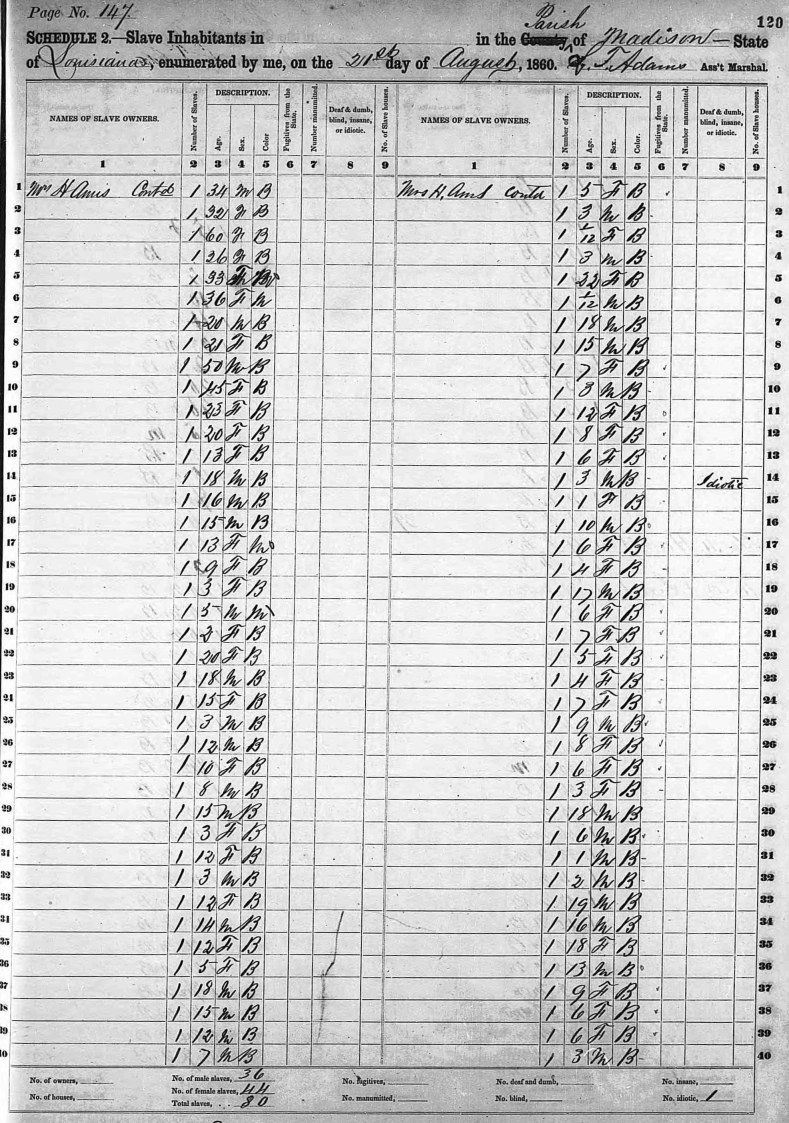 Page No. 147. 120
SCHEDULE 2.—Slave Inhabitants in in the County Parish of Madison — State
of Louisiana, enumerated by me, on the 21st day of August, 1860. T. Adams Ass't Marshal.
NAMES OF SLAVE OWNERS. Number of Slaves. DESCRIPTION. Age. Sex. Color. Fugitives from the State. Number manumitted. Deaf & dumb, blind, insane, or idiotic. No. of Slave houses. NAMES OF SLAVE OWNERS. Number of Slaves. DESCRIPTION. Age. Sex. Color. Fugitives from the State. Number manumitted. Deaf & dumb, blind, insane, or idiotic. No. of Slave houses.
1 2 3 4 5 6 7 8 9 1 2 3 4 5 6 7 8 9
1 Mrs H Amis Contd 1 34 M B Mrs H. Ams Contd 1 5 F B 1
2 1 32 F B 1 3 M B 2
3 1 60 F B 1 1/12 F B 3
4 1 26 F B 1 3 M B 4
5 1 33 B 1 22 F B 5
6 1 36 F M 1 1/12 M B 6
7 1 20 M B 1 18 M B 7
8 1 21 F B 1 15 M B 8
9 1 50 M B 1 7 F B 9
10 1 45 F B 1 3 M B 10
11 1 23 F B 1 12 F B 11
12 1 20 F B 1 8 F B 12
13 1 13 F B 1 6 F B 13
14 1 18 M B 1 3 M B Idiotic 14
15 1 16 M B 1 1 F B 15
16 1 15 M B 1 10 M B 16
17 1 13 F M 1 6 F B 17
18 1 9 F B 1 4 F B 18
19 1 3 F B 1 17 M B 19
20 1 5 M M 1 6 F B 20
21 1 2 F B 1 7 F B 21
22 1 20 F B 1 5 F B 22
23 1 18 M B 1 4 F B 23
24 1 15 F B 1 7 F B 24
25 1 3 M B 1 9 M B 25
26 1 12 M B 1 8 F B 26
27 1 10 F B 1 6 F B 27
28 1 8 M B 1 3 F B 28
29 1 15 M B 1 18 M B 29
30 1 3 F B 1 6 M B 30
31 1 12 F B 1 1 M B 31
32 1 3 M B 1 2 M B 32
33 1 12 F B 1 19 M B 33
34 1 14 M B 1 16 M B 34
35 1 12 F B 1 18 F B 35
36 1 5 F B 1 13 M B 36
37 1 18 M B 1 9 F B 37
38 1 15 M B 1 6 F B 38
39 1 12 M B 1 6 F B 39
40 1 7 M B 1 3 M B 40
No. of owners, No. of male slaves, 36 No. fugitives, No. deaf and dumb, No. insane,
No. of houses, No. of female slaves, 44 No. manumitted, No. blind, No. idiotic, 1
Total slaves, 80